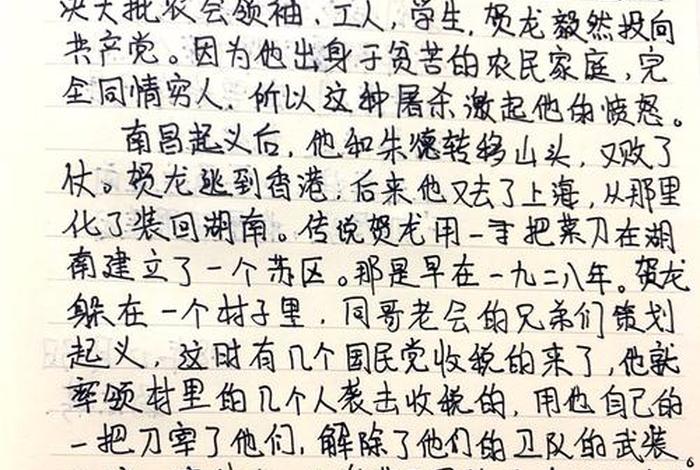 决大批农会领袖、工人、学生，贺龙毅然投向
共产党。因为他出身于贫苦的农民家庭，完
全同情穷人，所以这种屠杀激起他的愤怒。
南昌起义后，他和朱德转移山头，又败了
仗。贺龙逃到香港，后来他又去了上海，从那里
化了装回湖南。传说贺龙用一把菜刀在湖
南建立了一个苏区。那是早在一九二八年。贺龙
躲在一个村子里，同哥老会的兄弟们策划
起义，这时有几个国民党收税的来了，他就
率领村里的几个人袭击收税的，用他自己的
一把刀宰了他们，解除了他们的卫队的武装。